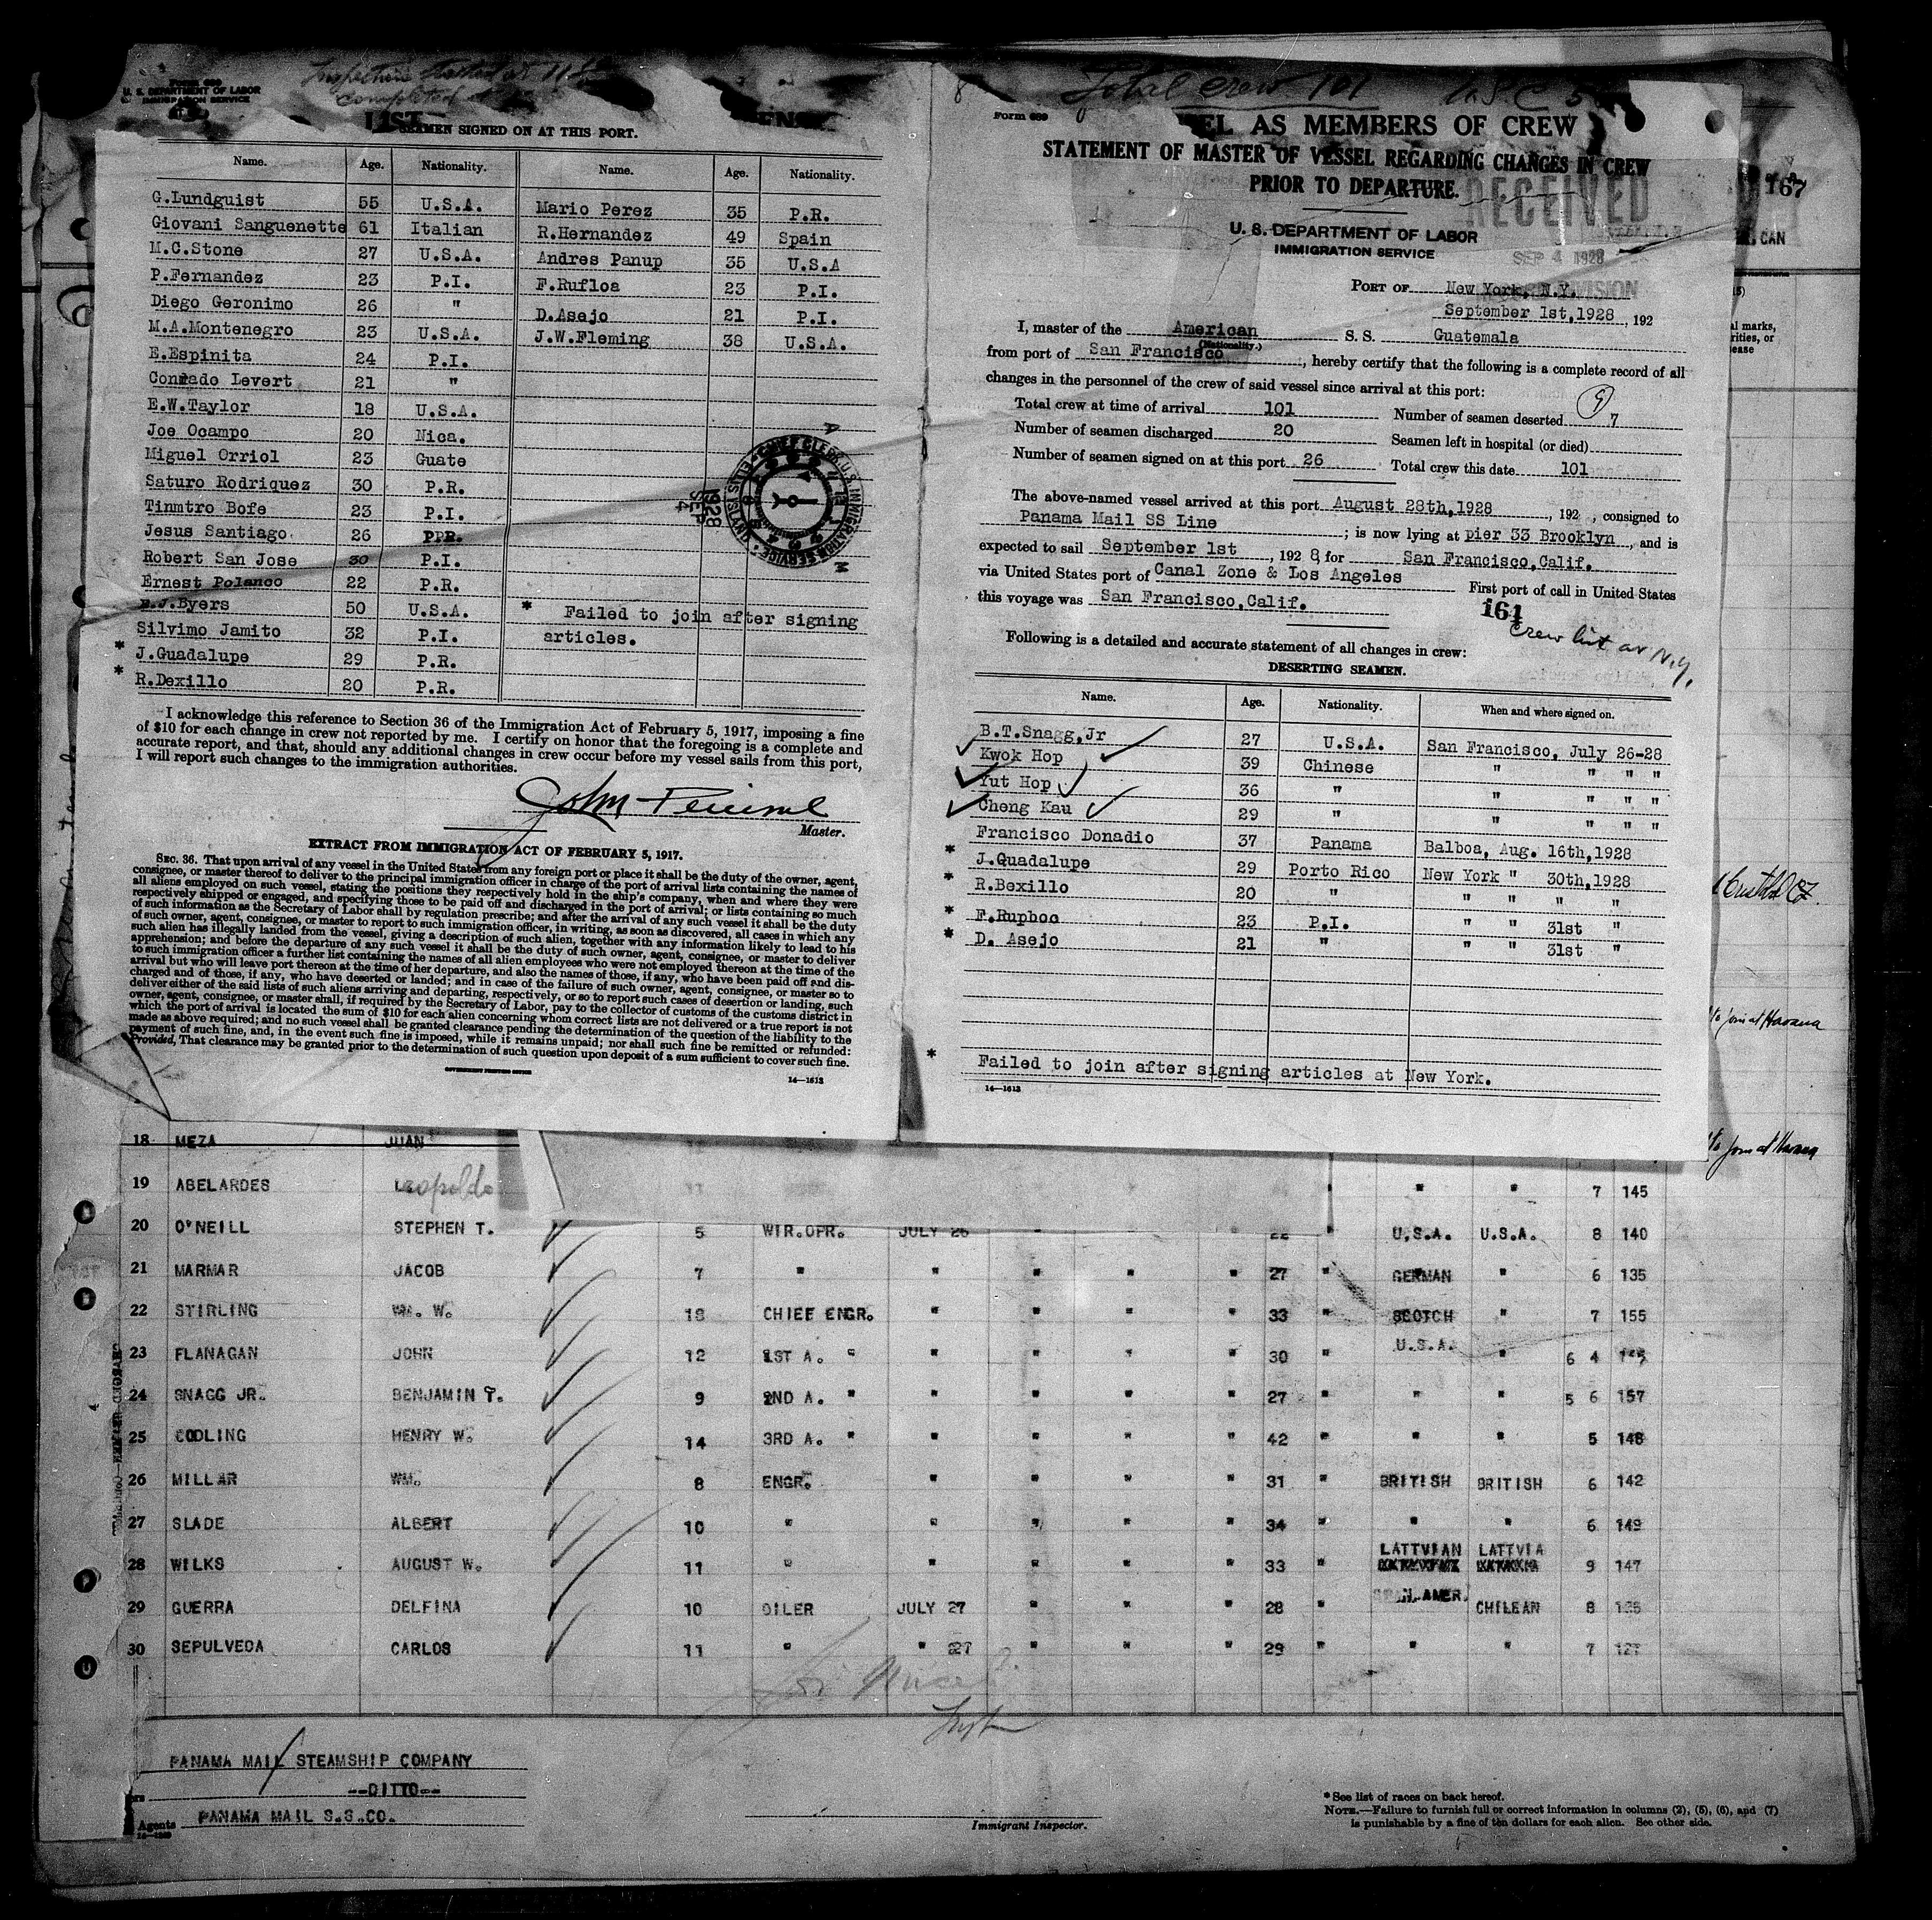 Form 689
U. S. DEPARTMENT OF LABOR
IMMIGRATION SERVICE
Inspection started at
completed
LIST
SEAMEN SIGNED ON AT THIS PORT.
Name. Age. Nationality. Name. Age. Nationality.
G.Lundguist 55 U.S.A. Mario Perez 35 P.R.
Giovani Sanguenette 61 Italian R.Hernandez 49 Spain
M.C.Stone 27 U.S.A. Andres Panup 35 U.S.A
P.Fernandez 23 P.I. F.Rufloa 23 P.I.
Diego Geronimo 26 " D.Asejo 21 P.I.
M.A.Montenegro 23 U.S.A. J.W.Fleming 38 U.S.A.
E.Espinita 24 P.I.
Conrado Levert 21 "
E.W.Taylor 18 U.S.A.
Joe Ocampo 20 Nica.
Miguel Orriol 23 Guate
Saturo Rodriquez 30 P.R.
Tinmtro Bofe 23 P.I.
Jesus Santiago 26 PPR.
Robert San Jose 30 P.I.
Ernest Polanco 22 P.R.
E.J.Byers 50 U.S.A. * Failed to join after signing
Silvimo Jamito 32 P.I. articles.
* J.Guadalupe 29 P.R.
* R.Dexillo 20 P.R.
CHIEF CLERK U.S. IMMIGRATION SERVICE ELLIS ISLAND
1928 SEP 4
I acknowledge this reference to Section 36 of the Immigration Act of February 5, 1917, imposing a fine
of $10 for each change in crew not reported by me. I certify on honor that the foregoing is a complete and
accurate report, and that, should any additional changes in crew occur before my vessel sails from this port,
I will report such changes to the immigration authorities.
John
Master.
EXTRACT FROM IMMIGRATION ACT OF FEBRUARY 5, 1917.
SEC. 36. That upon arrival of any vessel in the United States from any foreign port or place it shall be the duty of the owner, agent,
consignee, or master thereof to deliver to the principal immigration officer in charge of the port of arrival lists containing the names of
all aliens employed on such vessel, stating the positions they respectively hold in the ship's company, when and where they were
respectively shipped or engaged, and specifying those to be paid off and discharged in the port of arrival; or lists containing so much
of such information as the Secretary of Labor shall by regulation prescribe; and after the arrival of any such vessel it shall be the duty
of such owner, agent, consignee, or master to report to such immigration officer, in writing, as soon as discovered, all cases in which any
such alien has illegally landed from the vessel, giving a description of such alien, together with any information likely to lead to his
apprehension; and before the departure of any such vessel it shall be the duty of such owner, agent, consignee, or master to deliver
to such immigration officer a further list containing the names of all alien employees who were not employed thereon at the time of the
arrival but who will leave port thereon at the time of her departure, and also the names of those, if any, who have been paid off and dis-
charged and of those, if any, who have deserted or landed; and in case of the failure of such owner, agent, consignee, or master so to
deliver either of the said lists of such aliens arriving and departing, respectively, or so to report such cases of desertion or landing, such
owner, agent, consignee, or master shall, if required by the Secretary of Labor, pay to the collector of customs of the customs district in
which the port of arrival is located the sum of $10 for each alien concerning whom correct lists are not delivered or a true report is not
made as above required; and no such vessel shall be granted clearance pending the determination of the question of the liability to the
payment of such fine, and, in the event such fine is imposed, while it remains unpaid; nor shall such fine be remitted or refunded:
Provided, That clearance may be granted prior to the determination of such question upon deposit of a sum sufficient to cover such fine.
GOVERNMENT PRINTING OFFICE
14—1613
8
Total crew 101 U.S.C 5
Form 689
EL AS MEMBERS OF CREW
STATEMENT OF MASTER OF VESSEL REGARDING CHANGES IN CREW
PRIOR TO DEPARTURE.
RECEIVED
SEP 4 1928
DIVISION
U. S. DEPARTMENT OF LABOR
IMMIGRATION SERVICE
PORT OF New York, N.Y.
September 1st,1928, 192
I, master of the American S. S. Guatemala
(Nationality.)
from port of San Francisco, hereby certify that the following is a complete record of all
changes in the personnel of the crew of said vessel since arrival at this port:
Total crew at time of arrival 101 Number of seamen deserted 7 9
Number of seamen discharged 20 Seamen left in hospital (or died)
Number of seamen signed on at this port 26 Total crew this date 101
The above-named vessel arrived at this port August 28th,1928, 192 , consigned to
Panama Mail SS Line; is now lying at pier 33 Brooklyn, and is
expected to sail September 1st, 192 8, for San Francisco,Calif.
via United States port of Canal Zone & Los Angeles First port of call in United States
this voyage was San Francisco,Calif.
161
Crew list at N.Y.
Following is a detailed and accurate statement of all changes in crew:
DESERTING SEAMEN.
Name. Age. Nationality. When and where signed on.
B.T.Snagg,Jr 27 U.S.A. San Francisco, July 26-28
Kwok Hop 39 Chinese " " " "
Yut Hop 36 " " " " "
Cheng Kau 29 " " " " "
Francisco Donadio 37 Panama Balboa, Aug. 16th,1928
* J.Guadalupe 29 Porto Rico New York " 30th,1928
* R.Bexillo 20 " " " " "
* F.Rupboo 23 P.I. " " 31st "
* D. Asejo 21 " " " 31st "
* Failed to join after signing articles at New York.
14—1613
167
CAN
al marks,
rities, or
ease
Cristobal CZ.
to join at Havana
to join at Havana
18 MEZA JUAN
19 ABELARDES Leopoldo " " 7 145
20 O'NEILL STEPHEN T. 5 WIR.OPR. JULY 26 " " " 22 " U.S.A. U.S.A. 8 140
21 MARMAR JACOB 7 " " " " " 27 " GERMAN " 6 135
22 STIRLING WM. W. 18 CHIEF ENGR. " " " " 33 " SCOTCH " 7 155
23 FLANAGAN JOHN 12 1ST A. " " " " " 30 " U.S.A. " 6 4
24 SNAGG JR. BENJAMIN T. 9 2ND A. " " " " " 27 " " " 5 6 157
25 CODLING HENRY W. 14 3RD A. " " " " " 42 " " " 5 148
26 MILLAR WM. 8 ENGR. " " " " 31 " BRITISH BRITISH 6 142
27 SLADE ALBERT 10 " " " " " 34 " " " 6 149
28 WILKS AUGUST W. 11 " " " " " 33 " LATTVIAN LATTVIA 9 147
29 GUERRA DELFINA 10 OILER JULY 27 " " " 28 " SPAN.AMER. CHILEAN 8
30 SEPULVEDA CARLOS 11 " " 27 " " " 29 " " " 7
PANAMA MAIL STEAMSHIP COMPANY
--DITTO--
Agents PANAMA MAIL S.S.CO.
Immigrant Inspector.
* See list of races on back hereof.
NOTE.—Failure to furnish full or correct information in columns (2), (5), (6), and (7)
is punishable by a fine of ten dollars for each alien. See other side.